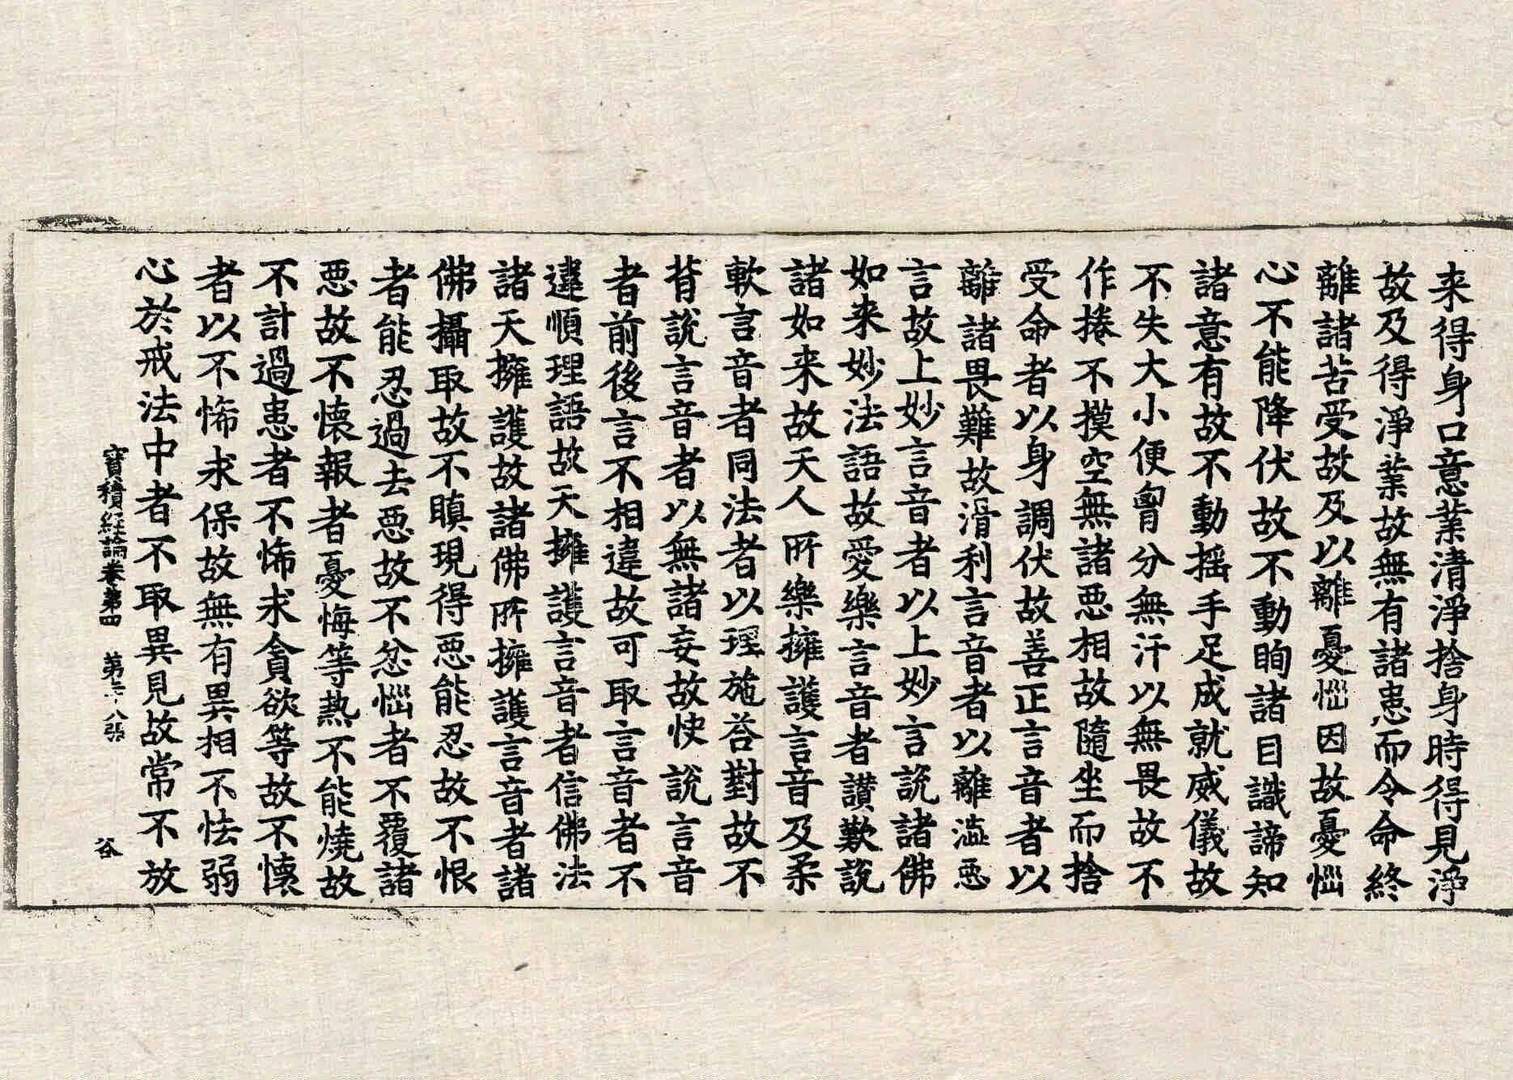 来得身口意業清淨捨身時得見淨
故及得淨業故無有諸患而令命終
離諸苦受故及以離憂惱因故憂惱
心不能降伏故不動眴諸目識諦知
諸意有故不動摇手足成就威儀故
不失大小便𦚾分無汗以無畏故不
作捲不摸空無諸惡相故隨坐而捨
受命者以身調伏故善正言音者以
離諸畏難故滑利言音者以離澁惡
言故上妙言音者以上妙言說諸佛
如来妙法語故愛樂言音者讃歎說
諸如来故天人所樂擁護言音及柔
軟言音者同法者以理施荅對故不
背說言音者以無諸妄故快說言音
者前後言不相違故可取言音者不
違順理語故天擁護言音者信佛法
諸天擁護故諸佛所擁護言音者諸
佛攝取故不瞋現得惡能忍故不恨
者能忍過去惡故不忿惱者不覆諸
惡故不懐報者憂悔等熱不能燒故
不計過患者不怖求貪欲等故不懐
者以不怖求保故無有異相不怯弱
心於戒法中者不取異見故常不放
寶積經論卷第四 第十八張 谷